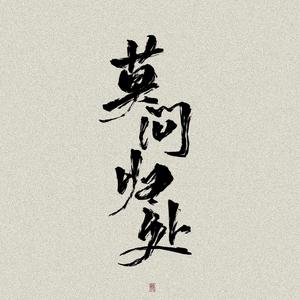 莫问归处